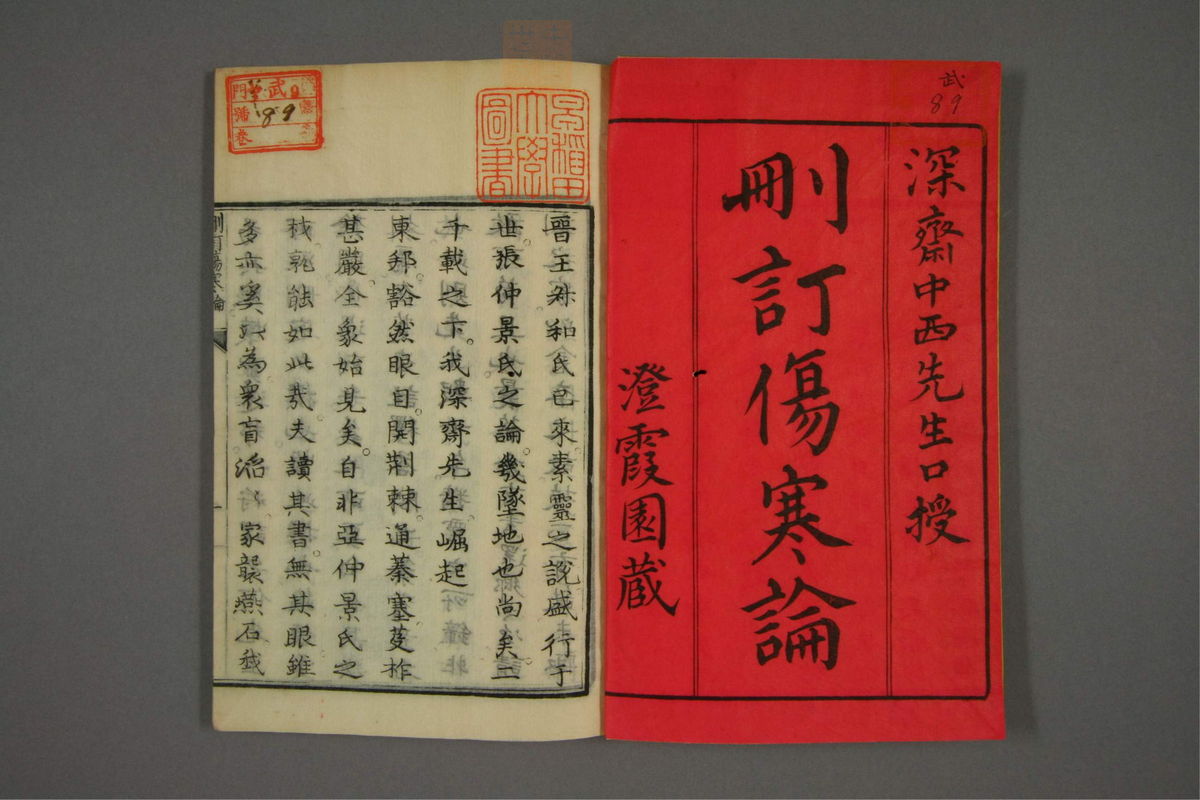 武
89
深齋中西先生口授
刪訂傷寒論
澄霞園蔵
早稲田
大學
圖書
武
門
號
89
卷
晉王叔和氏已來素靈之說盛行于
世張仲景氏之論幾墜地也尚矣二
千載之下我深齋先生崛起
東邦豁然眼目開荆棘通蓁塞芟柞
甚嚴全象始見矣自非亞仲景氏之
孰能如此哉夫讀其書無其眼雖
多亦奚以為衆盲滔滔家襲燕石
刪訂傷寒論